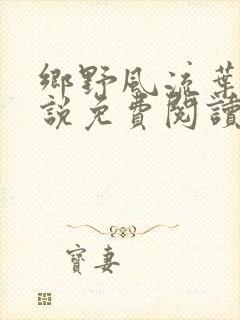 鄉野風流葉
說免費閱讀
寶妻